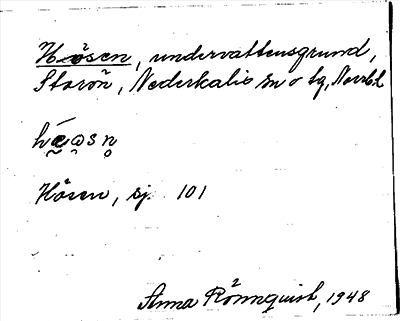 Håsen, undervattensgrund,
Storön, Nederkalix sn o tg, Norrb.l.
Håsen, sj. 101
Anna Rönnquist, 1948